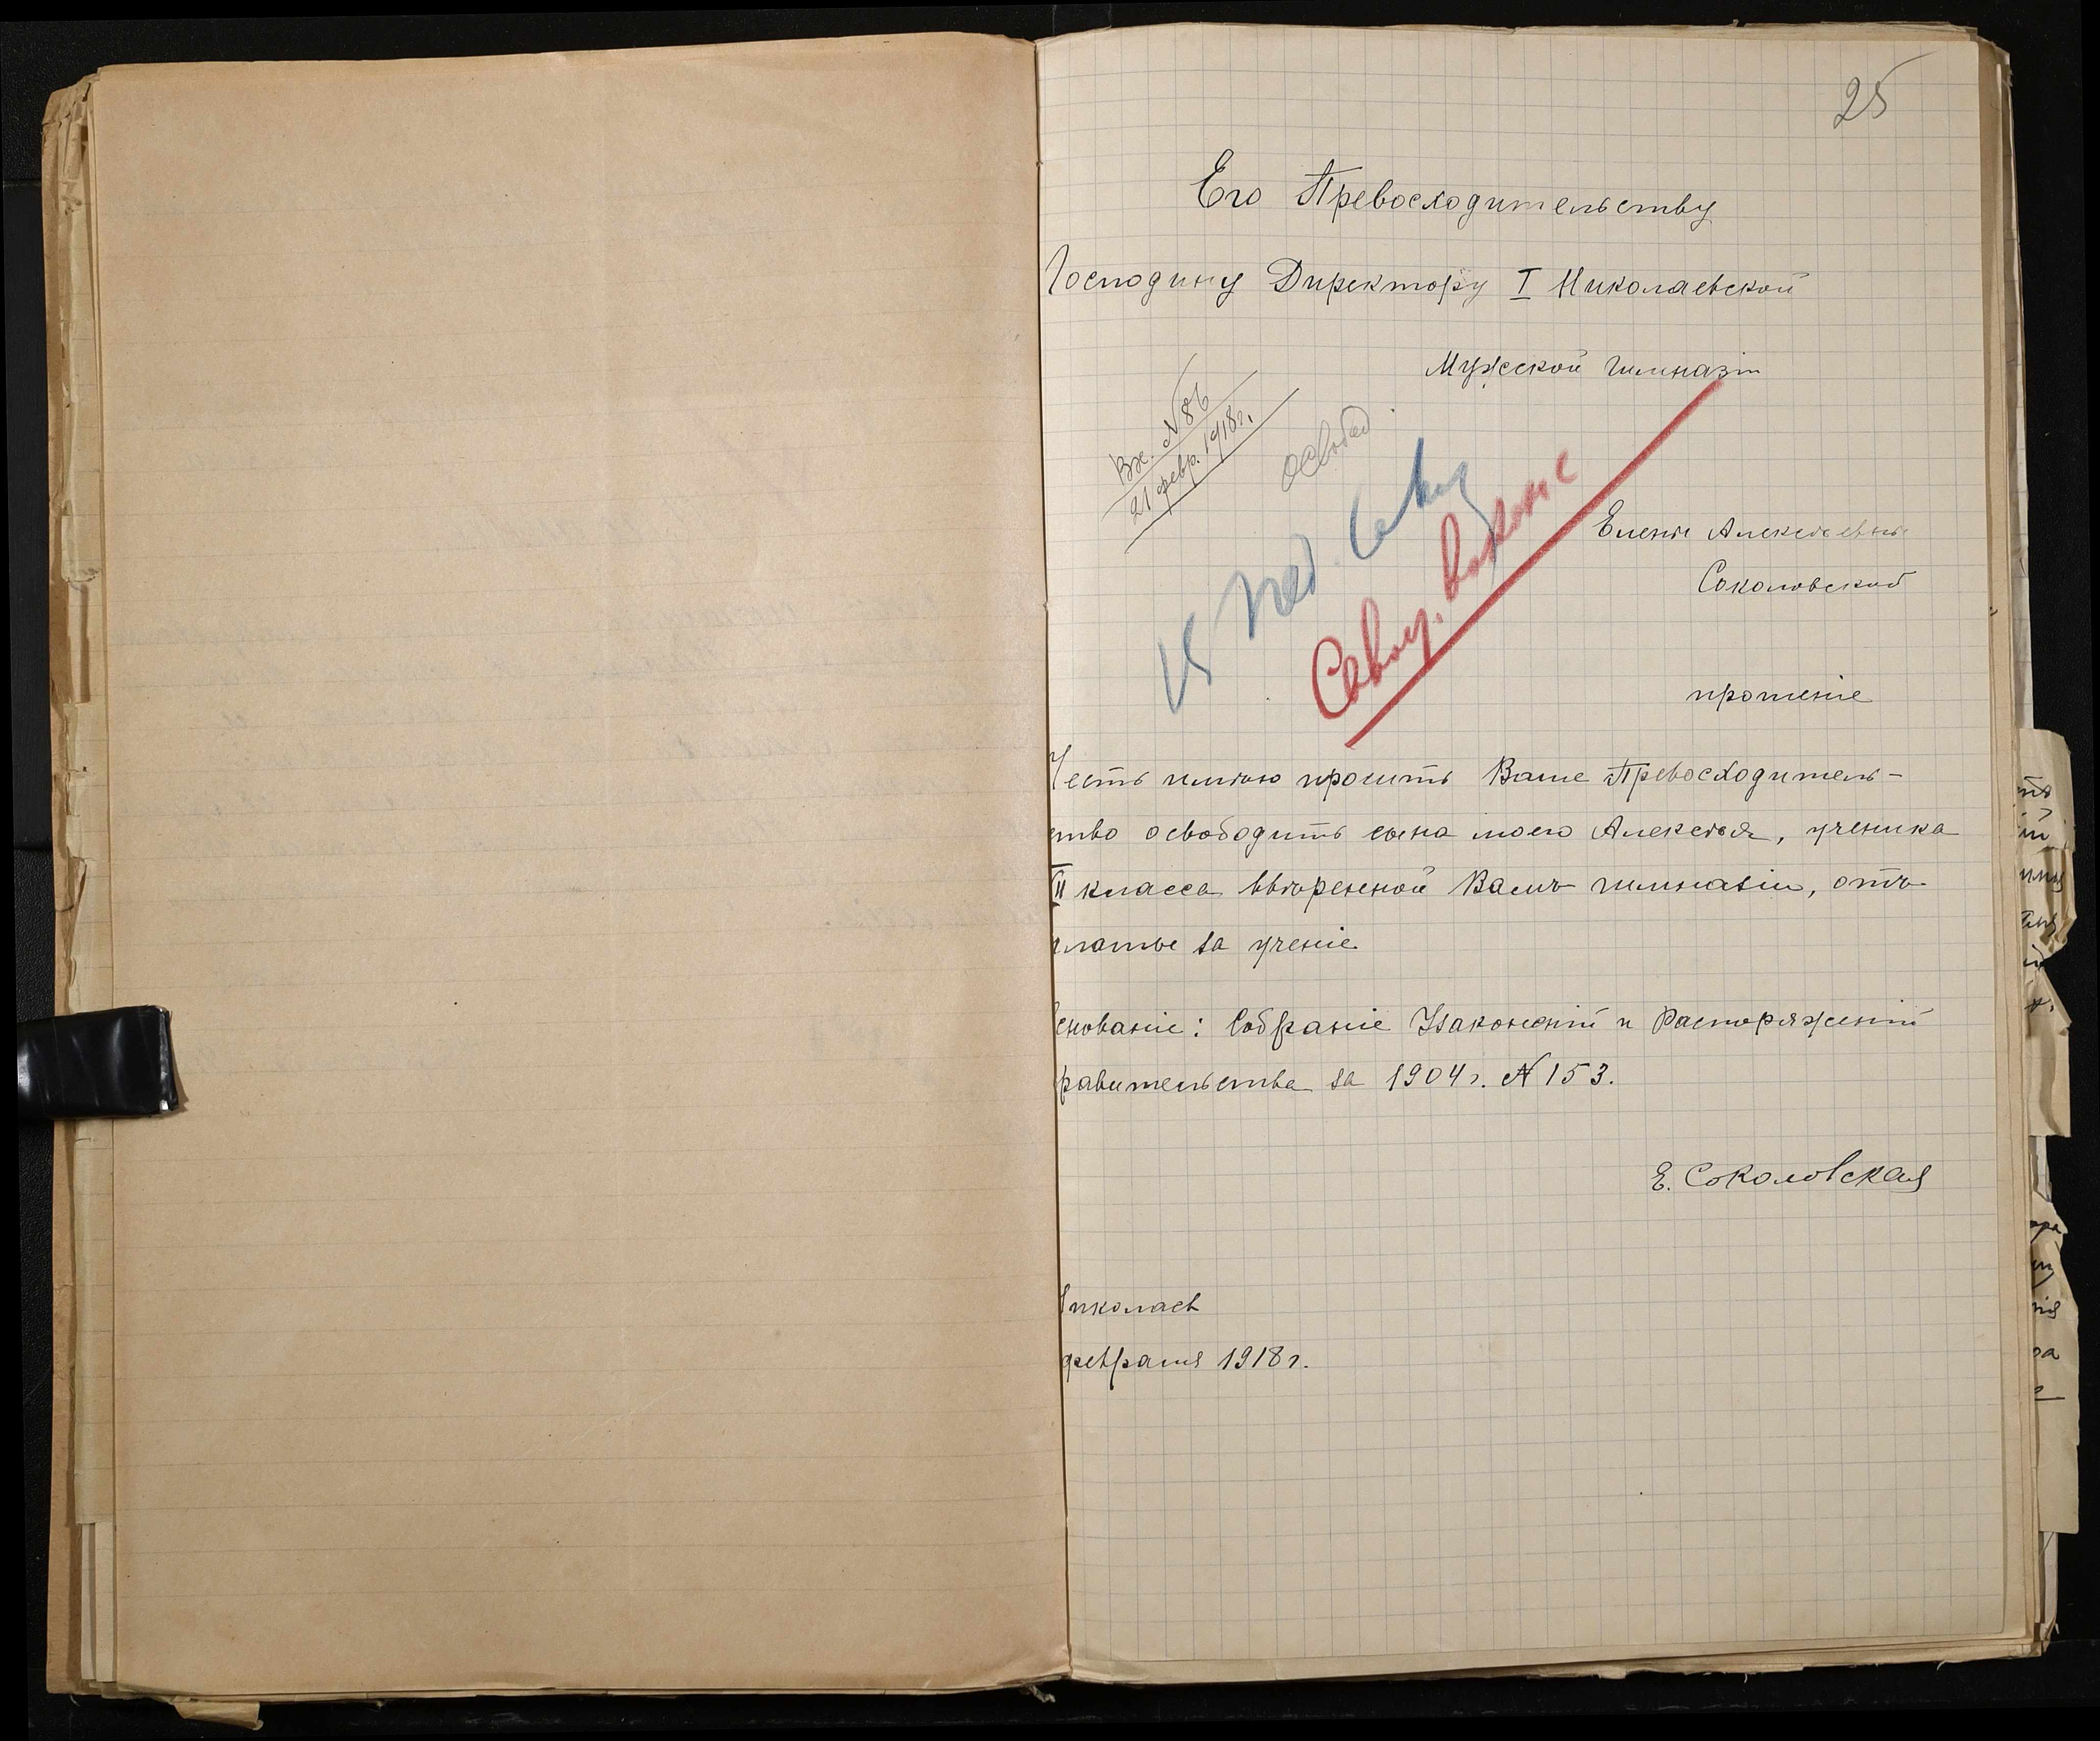 25
Его Превосходительству
Господину Директору I Николаевской
Мужской Гимназіи
Вх. N 86
21 февр. 1918 г.
освобод.
Еленѣ Алексѣевнѣ
Соколовской
прошеніе
Честь имѣю просить Ваше Превосходитель-
ство освободить сына моего Алексѣя, ученика
II класса ввѣренной Вамъ гимназіи, отъ
платы за ученіе
снованіе: Собраніе Узаконеній и Распоряженій
равительства за 1904 г. N 153.
Е. Соколовская
Николаев
февраля 1918 г.